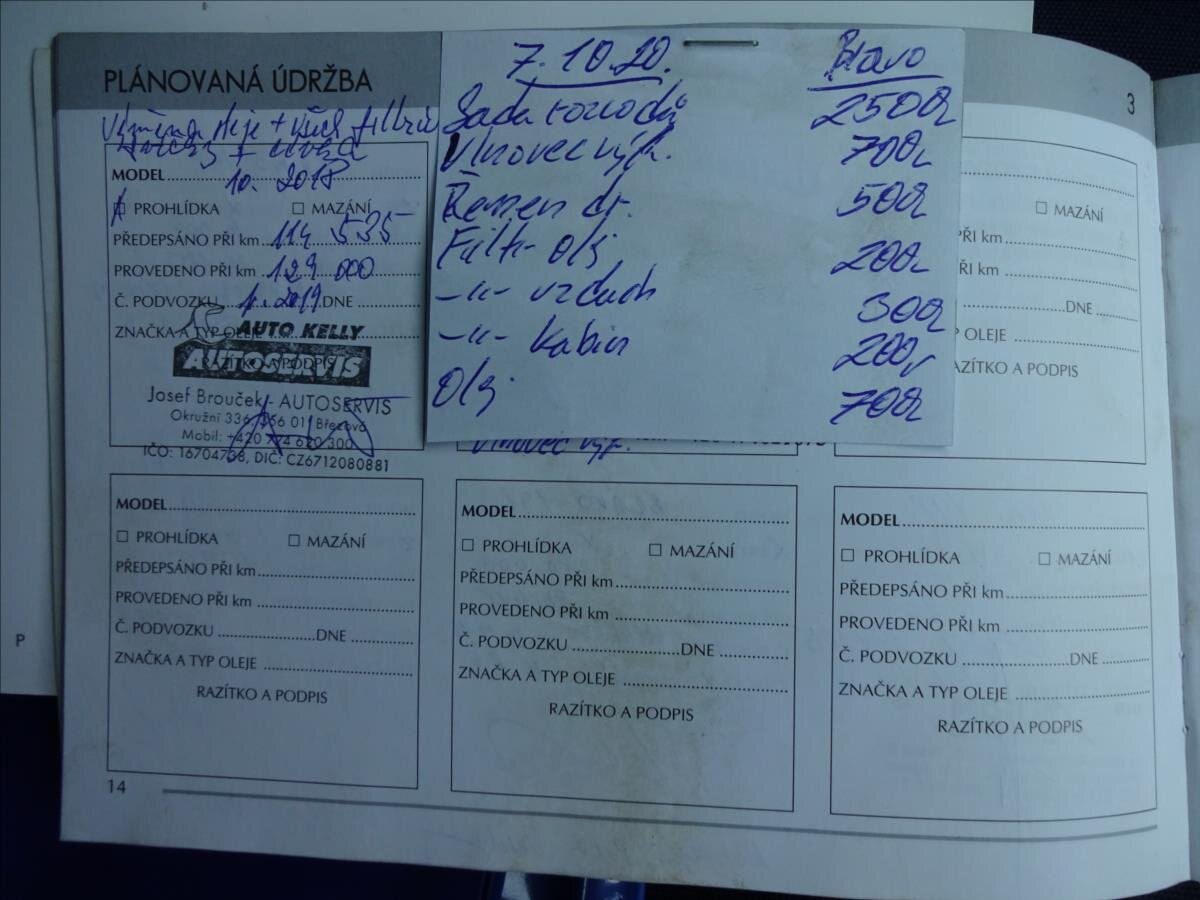 PLÁNOVANÁ ÚDRŽBA
3
Výměna oleje + všech filtrů
MODEL
10. 2018
PROHLÍDKA
MAZÁNÍ
PŘEDEPSÁNO PŘI km 114 535
PROVEDENO PŘI km 129 000
Č. PODVOZKU 2019 DNE
ZNAČKA A TYP OLEJE
RAZÍTKO A PODPIS
AUTO KELLY
AUTOSERVIS
Josef Brouček - AUTOSERVIS
Okružní 336, 356 01 Březová
Mobil: +420 774 620 300
IČO: 16704738, DIČ: CZ6712080881
7.10.20. Bravo
Sada rozvodů 2500,-
Vlnovec výf. 700,-
Řemen dr. 500,-
Filtr olj 200,-
-"- vzduch 300,-
-"- kabin 200,-
Olj 700,-
Vlnovec výf.
MAZÁNÍ
PŘI km
ŘI km
DNE
YP OLEJE
AZÍTKO A PODPIS
MODEL
PROHLÍDKA
MAZÁNÍ
PŘEDEPSÁNO PŘI km
PROVEDENO PŘI km
Č. PODVOZKU DNE
ZNAČKA A TYP OLEJE
RAZÍTKO A PODPIS
MODEL
PROHLÍDKA
MAZÁNÍ
PŘEDEPSÁNO PŘI km
PROVEDENO PŘI km
Č. PODVOZKU DNE
ZNAČKA A TYP OLEJE
RAZÍTKO A PODPIS
MODEL
PROHLÍDKA
MAZÁNÍ
PŘEDEPSÁNO PŘI km
PROVEDENO PŘI km
Č. PODVOZKU DNE
ZNAČKA A TYP OLEJE
RAZÍTKO A PODPIS
14
P